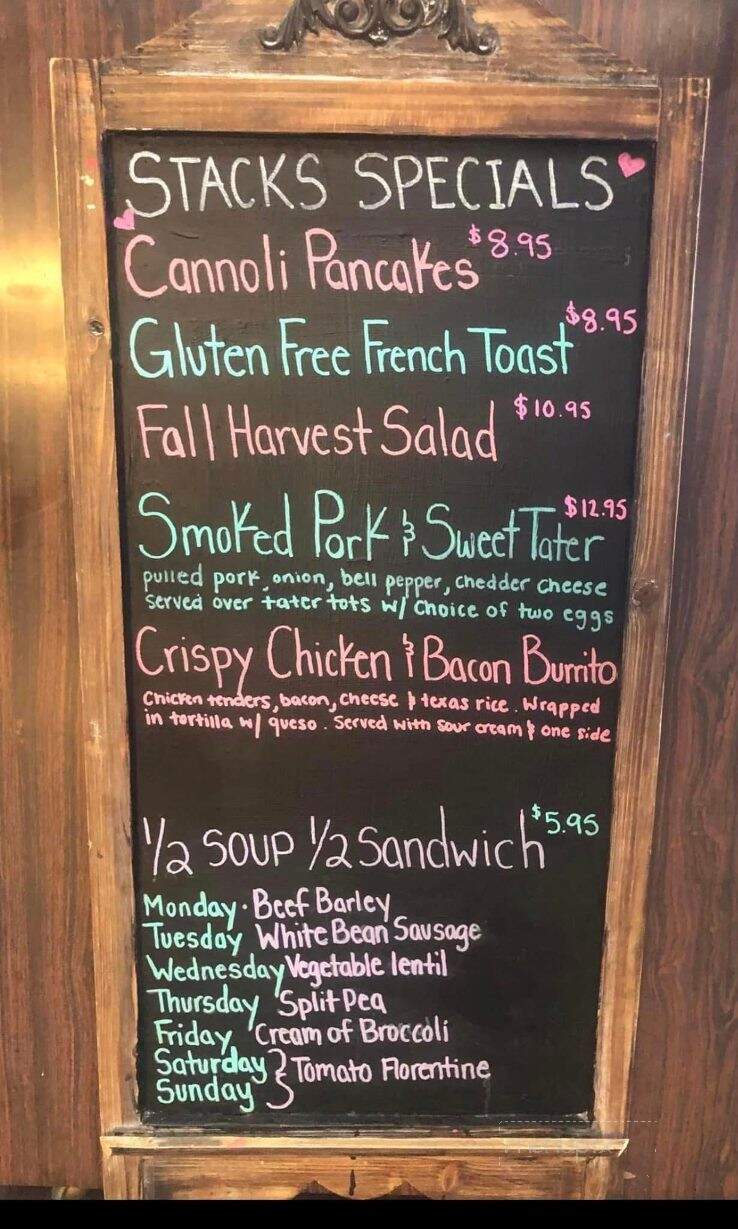 STACKS SPECIALS
Cannoli Pancakes $8.95
Gluten Free French Toast $8.95
Fall Harvest Salad $10.95
Smoked Pork & Sweet Tater $12.95
pulled pork, onion, bell pepper, chedder cheese
served over tater tots w/ choice of two eggs
Crispy Chicken & Bacon Burrito
Chicken tenders, bacon, cheese & texas rice. Wrapped
in tortilla w/ queso. Served with sour cream & one side
1/2 SOUP 1/2 Sandwich $5.95
Monday · Beef Barley
Tuesday White Bean Sausage
Wednesday Vegetable lentil
Thursday Split Pea
Friday Cream of Broccoli
Saturday } Tomato Florentine
Sunday